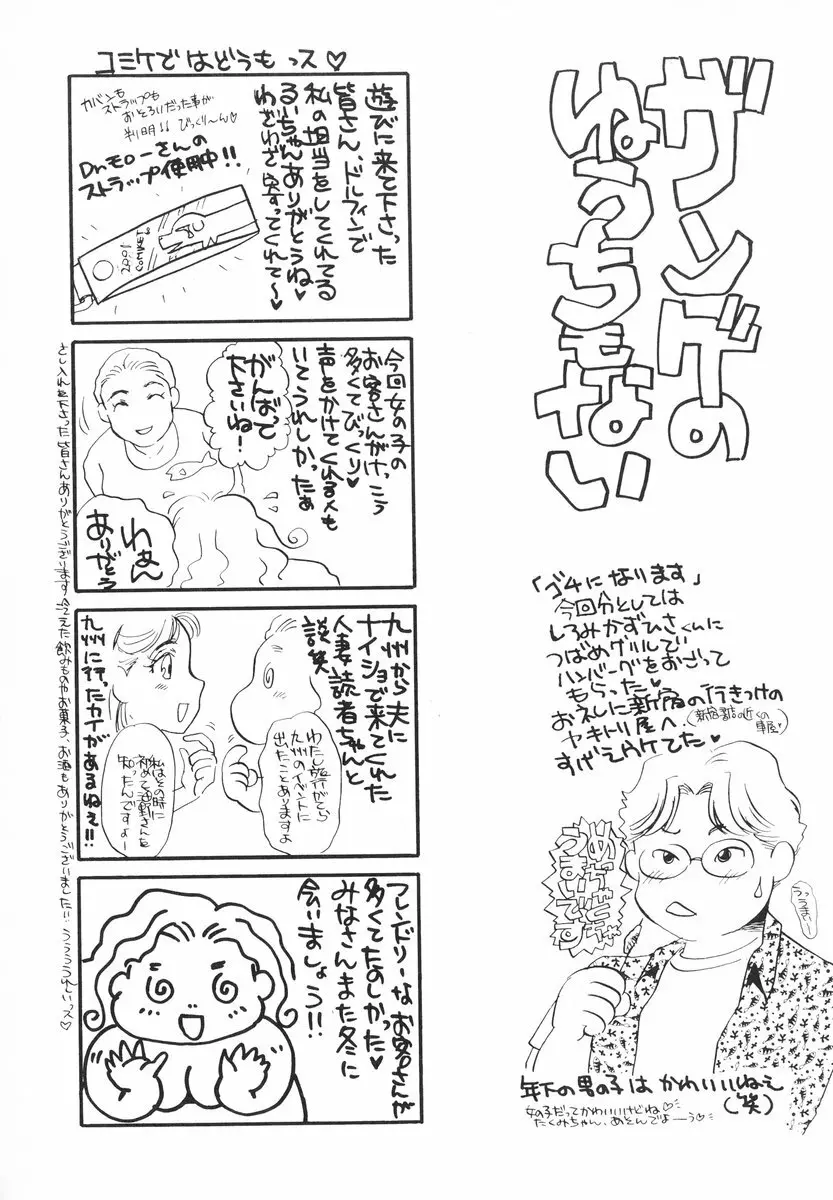 ガンゲの
ぬうちもない
「ゴチになります」
今回分としては
しろみかずひさくんに
つばめグリルで
ハンバーグをおごって
もらった♥
お礼しに新宿の行きつけの
ヤキトリ屋へ
すげえウケてた♥
めっちゃくちゃ
うまいです
うっうまいー
年下の男の子はかわいいねぇ
(笑)
女の子だってかわいいけどね♡
たくみちゃん、あそんでよーう♡
コミケではどうもっス♡
遊びに来て下さった
皆さん、ドルフィンで
私の担当をしてくれてる
るいちゃんありがとうね♥
わざわざ寄ってくれて〜♥
カバンも
ストラップも
おとろいだった事が
判明!! びっくり〜ん♡
Dr.モローさんの
ストラップ使用中!!
2001
COMIKET
今回女の子の
お客さんがけっこう
多くてびっくり♥
声をかけてくれる人も
いてうれしかったぁ
がんばって
下さいね!
わぁん
ありがとう
九州から夫に
ナイショで来てくれた
人妻読者ちゃんと
談笑
わたし旅行がてら
九州のイベントに
出たことありますよ
私はその時に
初めて
知ったんですよー
九州に行ったカイがあるねぇ!!
フレンドリーなお客さんが
多くてたのしかった♥
みなさんまた冬に
会いましょう!!
さし入れを下さった皆さんありがとうございます
飲みものやお菓子、お酒もありがとうございましたい